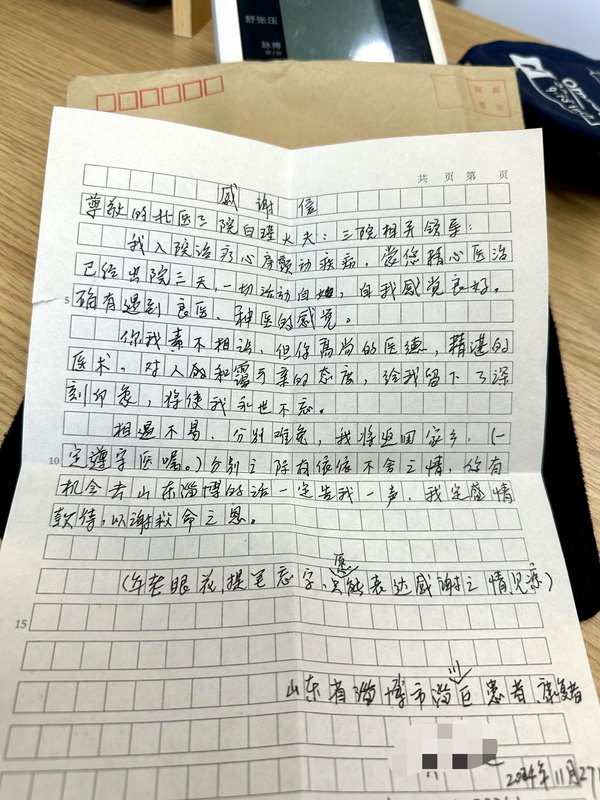 舒张压
脉搏
次/分
共 页 第 页
感谢信
尊敬的北医三院白瑾大夫：三院相关领导：
我入院治疗心房颤动疾病，蒙您精心医治
已经出院三天，一切活动自如，自我感觉良好。
5
确有遇到良医、神医的感觉。
你我素不相识，但你高尚的医德，精湛的
医术。对人的和蔼可亲的态度，给我留下了深
刻印象，将使我永世不忘。
相遇不易、分别难免，我将返回家乡，（一
10
定遵守医嘱。）分别之际有依依不舍之情，你有
机会去山东淄博的话一定告我一声，我定盛情
款待，以谢救命之恩。
愿
（年老眼花，提笔忘字，只能表达感谢之情见谅）
15
川
山东省淄博市淄区患者 康复者
2024年11月27